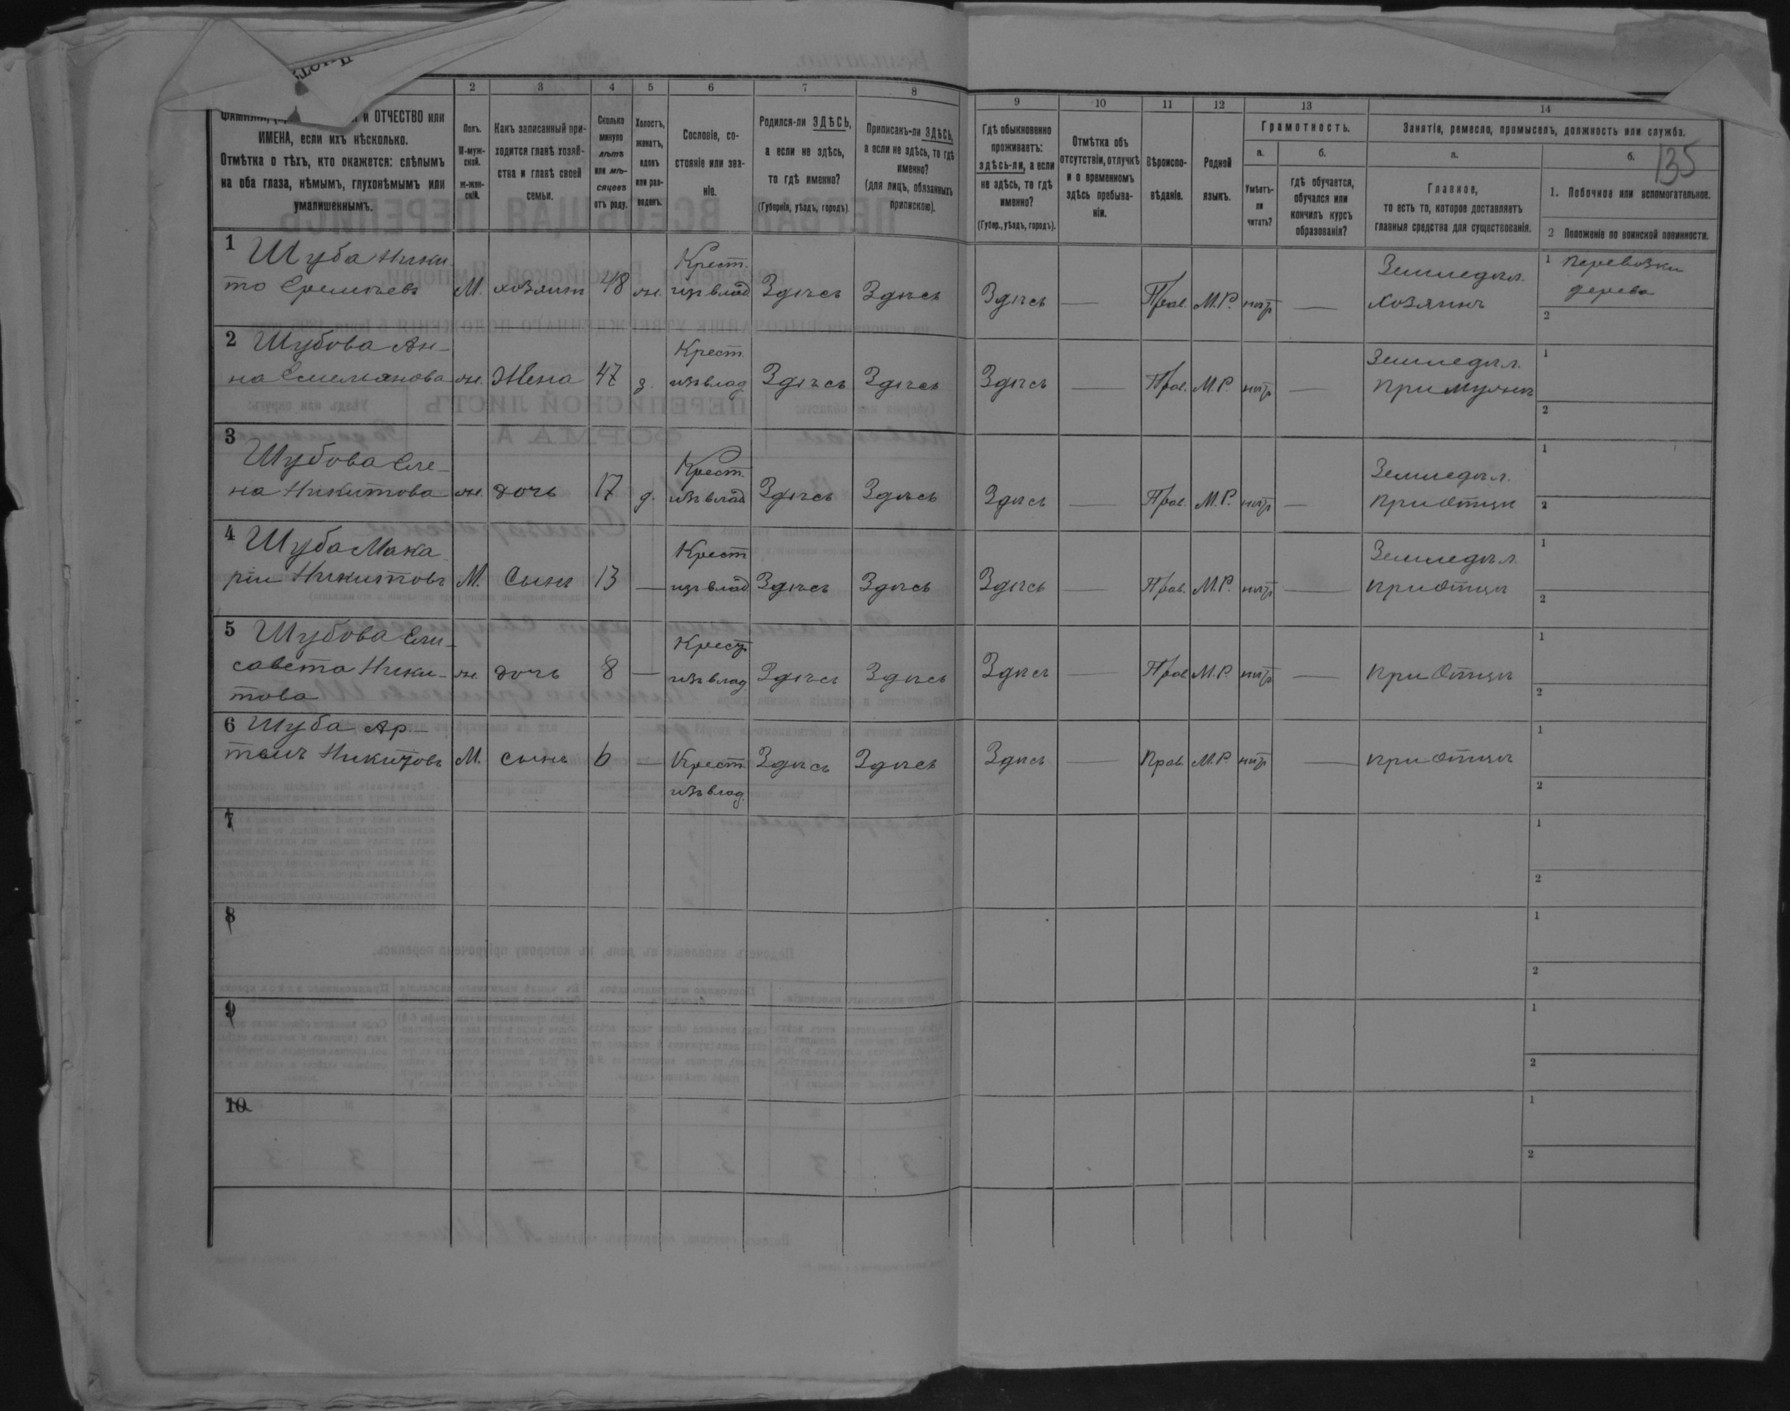 135
2
3
4
5
6
7
8
9
10
11
12
13
14
и ОТЧЕСТВО или
ИМЕНА, если ихъ нѣсколько.
Отмѣтка о тѣхъ, кто окажется: слѣпымъ
на оба глаза, нѣмымъ, глухонѣмымъ или
умалишеннымъ.
Полъ.
М-муж-
ской.
ж-жен-
скій.
Какъ записанный при-
ходится главѣ хозяй-
ства и главѣ своей
семьи.
Сколько
минуло
лѣтъ
или мѣ-
сяцевъ
отъ роду.
Холостъ,
женатъ,
вдовъ
или раз-
веденъ.
Сословіе, со-
стояніе или зва-
ніе.
Родился-ли ЗДѢСЬ,
а если не здѣсь,
то гдѣ именно?
(Губернія, уѣздъ, городъ).
Приписанъ-ли ЗДѢСЬ,
а если не здѣсь, то гдѣ
именно?
(для лицъ, обязанныхъ
припискою).
Гдѣ обыкновенно
проживаетъ:
здѣсь-ли, а если
не здѣсь, то гдѣ
именно?
(Губер., уѣздъ, городъ).
Отмѣтка объ
отсутствіи, отлучкѣ
и о временномъ
здѣсь пребыва-
ніи.
Вѣроиспо-
вѣданіе.
Родной
языкъ.
Грамотность.
а.
Умѣетъ-
ли
читать?
б.
гдѣ обучается,
обучался или
кончилъ курсъ
образованія?
Занятіе, ремесло, промыселъ, должность или служба.
а.
Главное,
то есть то, которое доставляетъ
главныя средства для существованія.
б.
1. Побочное или вспомогательное.
2 Положеніе по воинской повинности.
1 Шуба Ники-
та Еремѣевъ М. хозяинъ 48 жн. Крест. изъ влад Здѣсь Здѣсь Здѣсь — Прав. М.Р. нѣтъ — Земледѣл. Хозяинъ 1 Перевозка дерева
2
2 Шубова Ан-
на Емельянова ж. Жена 47 з Крест. изъ влад Здѣсь Здѣсь Здѣсь — Прав. М.Р. нѣтъ — Земледѣл. при мужѣ 1
2
3 Шубова Еле-
на Никитова ж. дочь 17 д. Крест. изъ влад Здѣсь Здѣсь Здѣсь — Прав. М.Р. нѣтъ — Земледѣл. при отцѣ 1
2
4 Шуба Мака
рій Никитовъ М. Сынъ 13 — Крест изъ влад Здѣсь Здѣсь Здѣсь — Прав. М.Р. нѣтъ — Земледѣл. при отцѣ 1
2
5 Шубова Ели-
савета Ники-
това ж дочь 8 — Крест изъ влад Здѣсь Здѣсь Здѣсь — Прав М.Р. нѣтъ — при отцѣ 1
2
6 Шуба Ар-
темъ Никитовъ М. сынъ 6 — Крест. изъ влад. Здѣсь Здѣсь Здѣсь — Прав М.Р. нѣтъ — при отцѣ 1
2
7
1
2
8
1
2
9
1
2
10
1
2